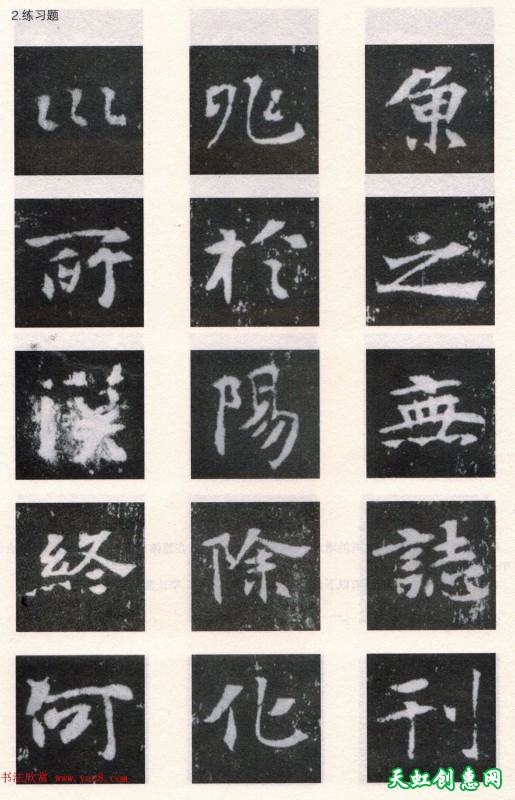 2.练习题
魚之無誌刊
兆於陽除化
所終何
书法欣赏 www.yac8.com
天虹创惠网